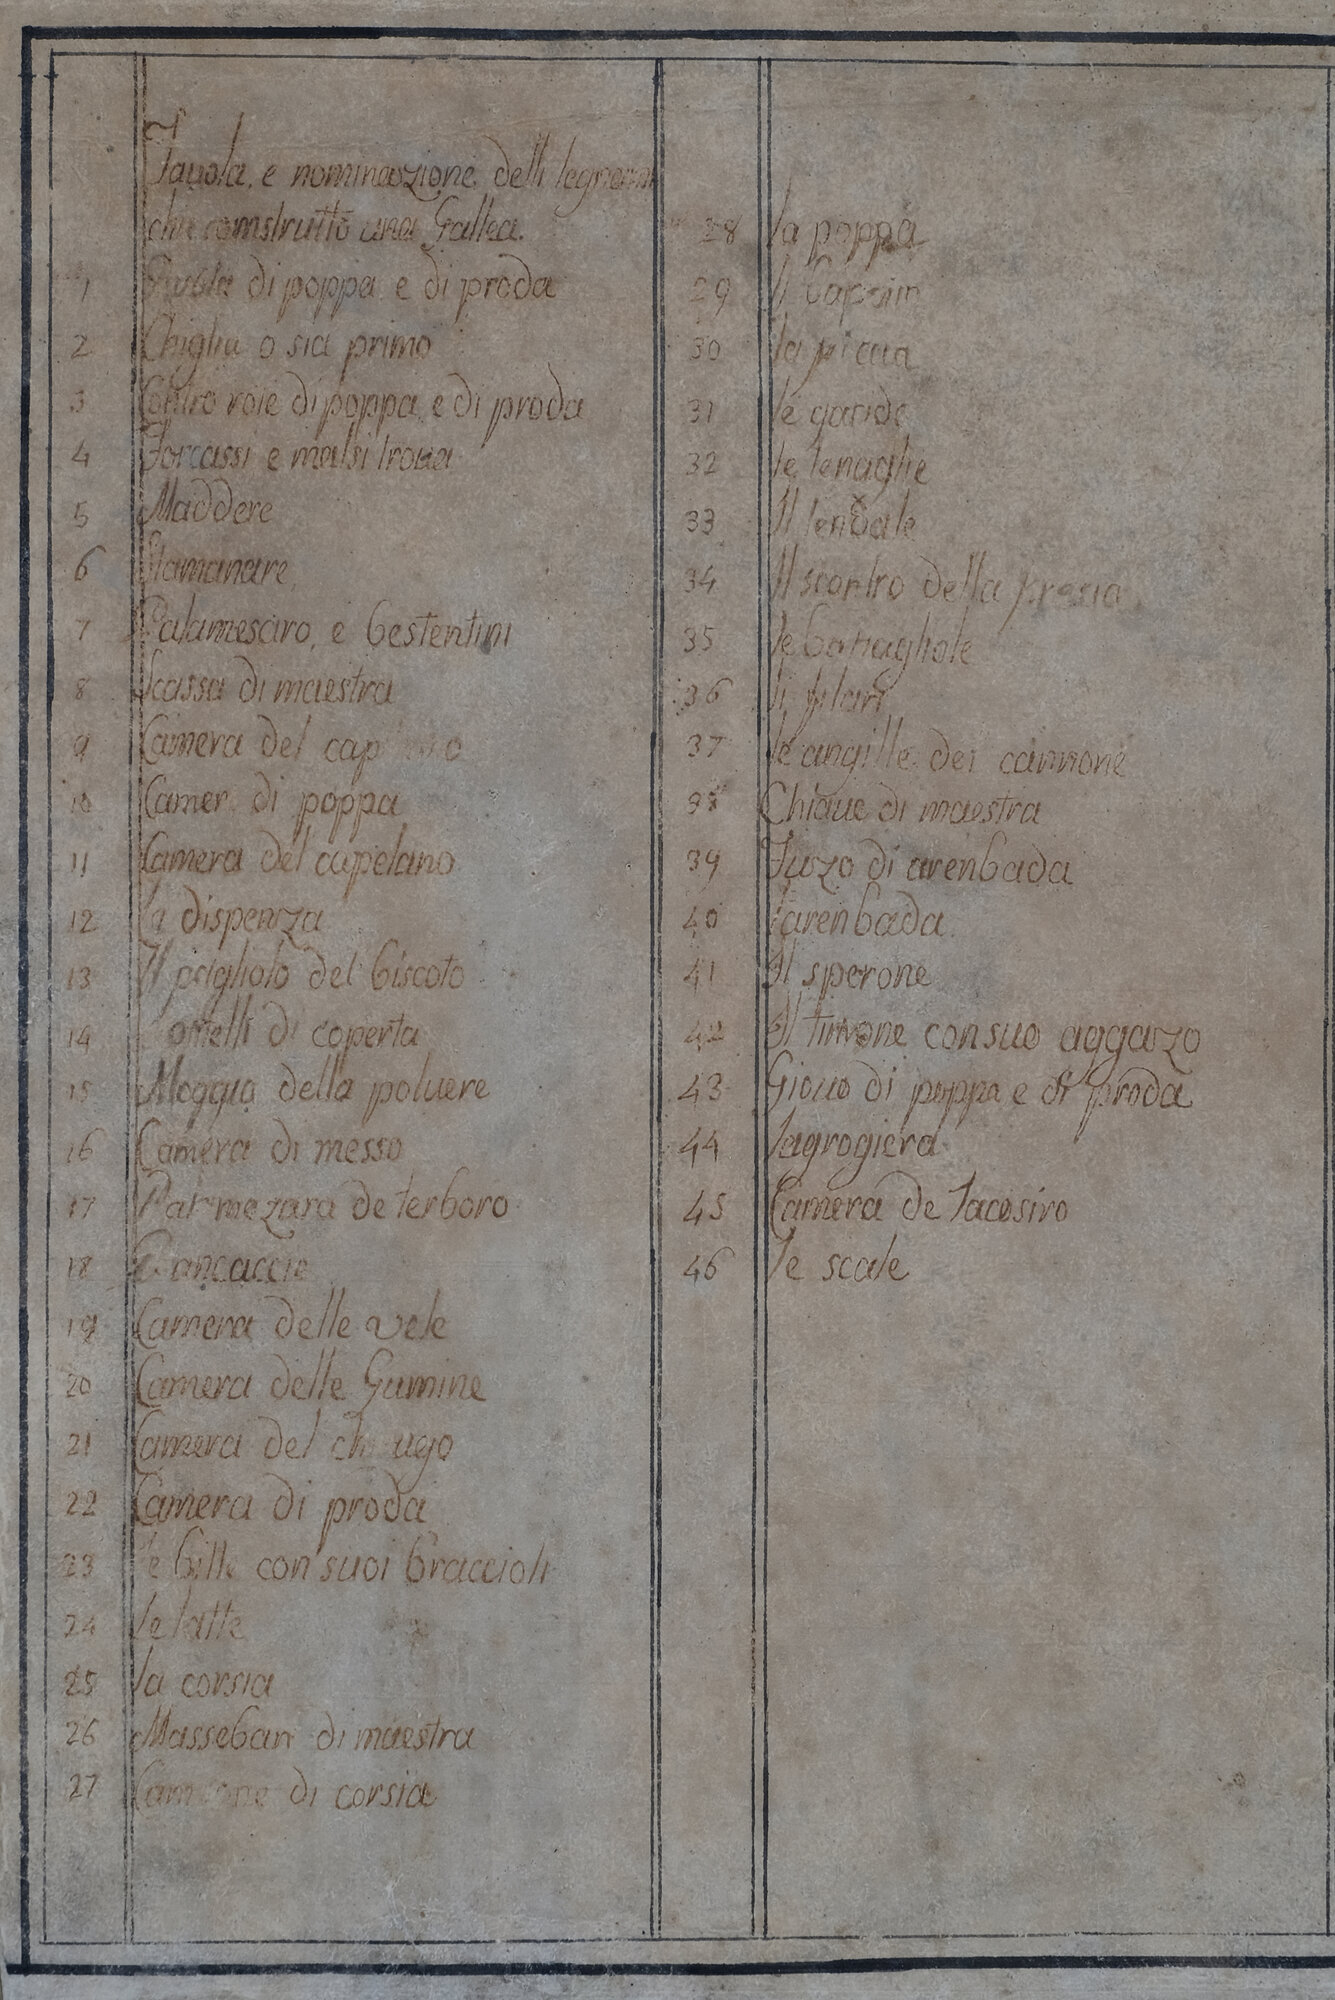 Tavola, e nominazione delli legnami
che construtto una Gallea.
1 di poppa e di proda
2 Chiglia o sia primo
3 Contro roie di poppa, e di proda
4 Forcassi e malsi trova
5 Maddere
6 Stamanare
7 Palamesaro, e bestentini
8 Scassa di maestra
9 Camera del
10 Camera di poppa
11 Camera del capelano
12 la dispenza
13 Il pagliolo del biscoto
14 di coperta
15 Moggia della poluere
16 Camera di messo
17 Parmezara de terboro
18 Bancaccie
19 Camera delle vele
20 Camera delle Gumine
21 Camera del
22 Camera di proda
23 le bitte con suoi braccioli
24 le latte
25 la corsia
26 Massebari di maestra
27 di corsia
28 la poppa
29 Il
30 la
31 le
32 le tenaglie
33 Il tendale
34 Il scontro della
35 le batagliole
36 li filari
37 le angille del cannone
38 Chiaue di maestra
39 Iuzo di arenbada
40 larenbada
41 Il sperone
42 Il timone con suo aggiazo
43 Giouo di poppa e di proda
44 lagrogiera
45 Camera de
46 le scale